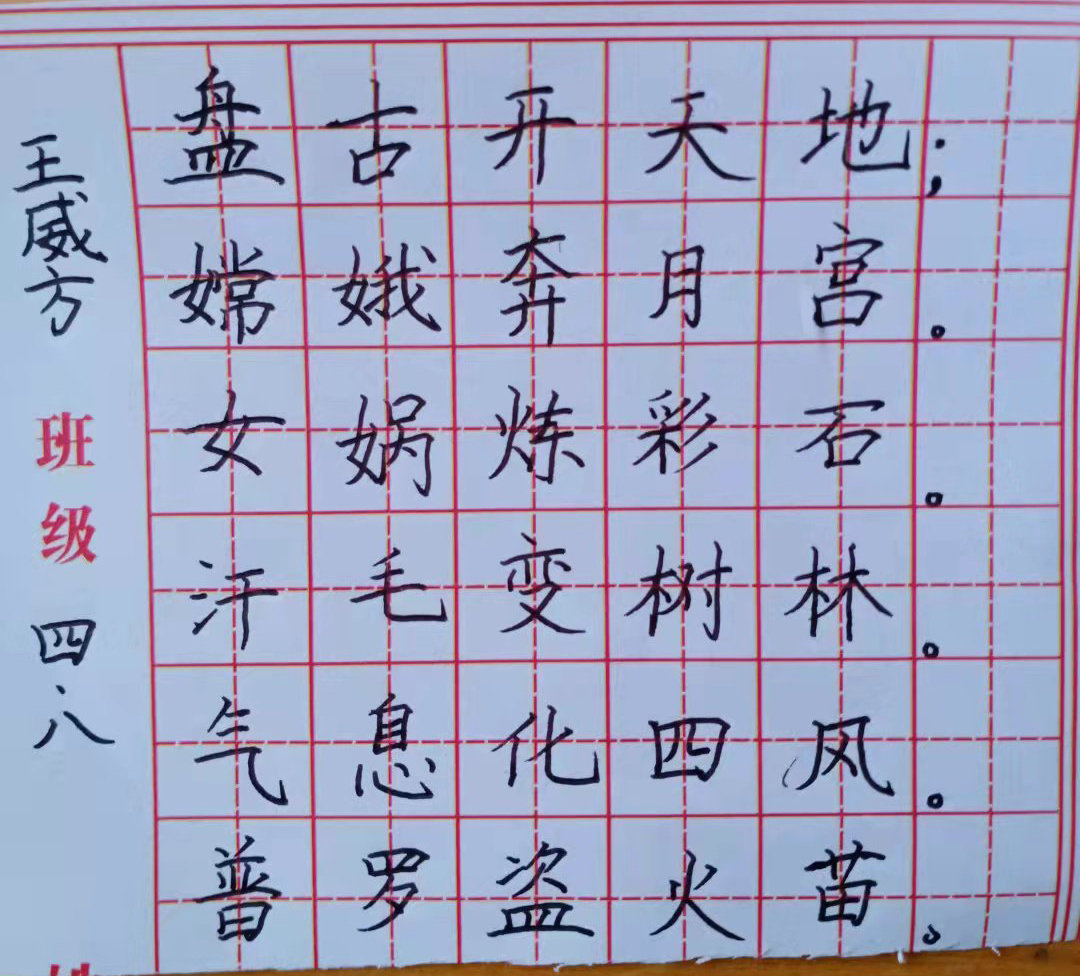 王威方
班级 四、八
盘古开天地；
嫦娥奔月宫。
女娲炼彩石。
汗毛变树林。
气息化四风。
普罗盗火苗。